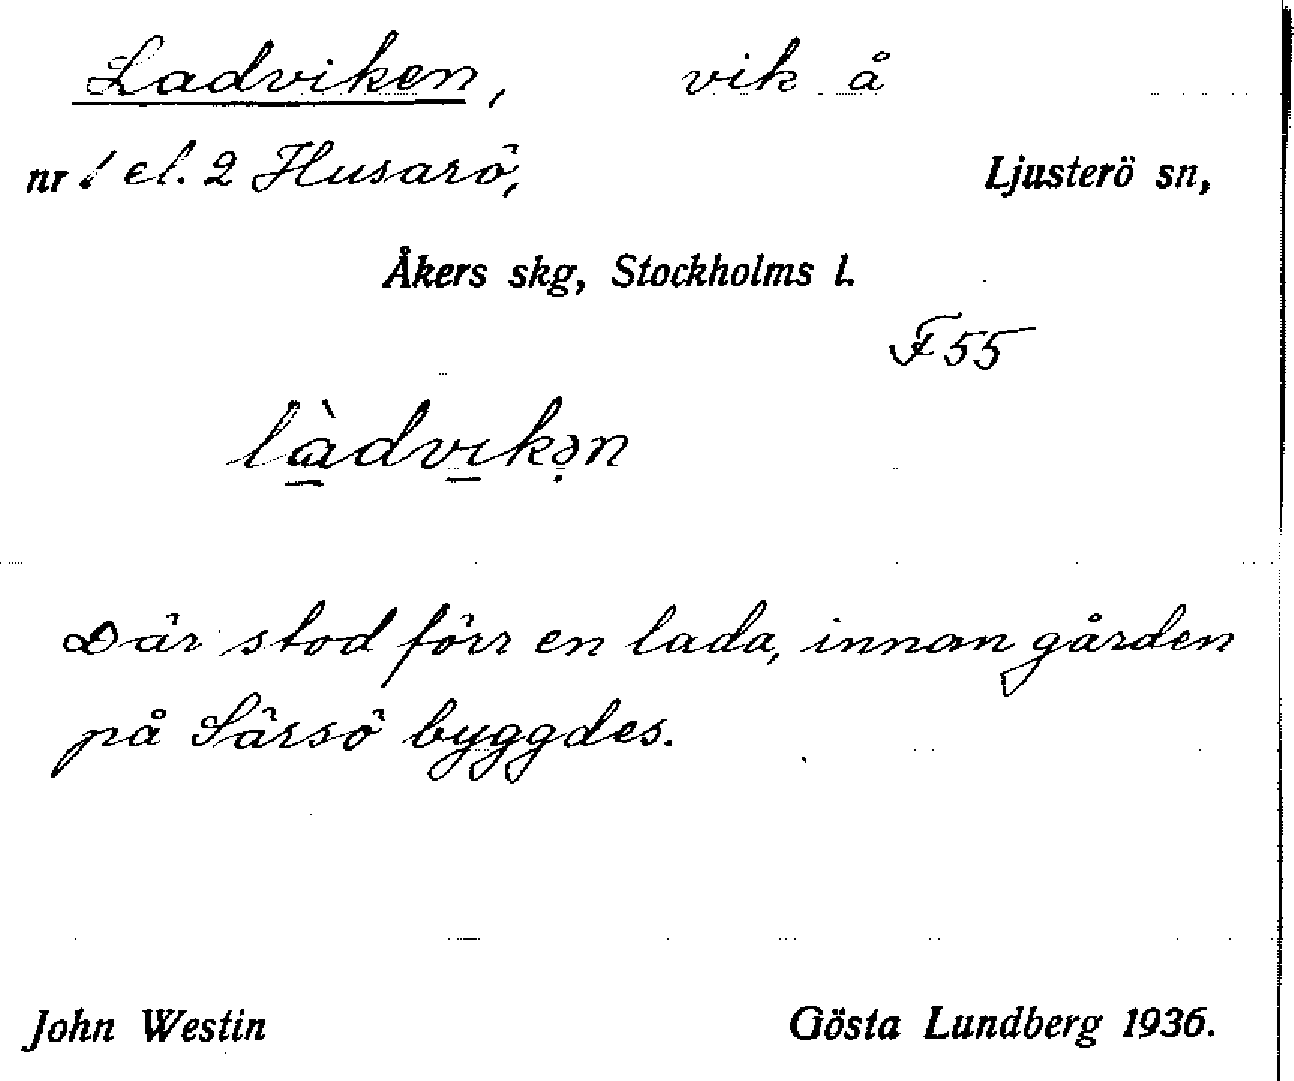 Ladviken, vik å
nr 1 el. 2 Husarö, Ljusterö sn,
Åkers skg, Stockholms l.
F 55
làdvikən
Där stod förr en lada, innan gården
på Särsö byggdes.
John Westin Gösta Lundberg 1936.